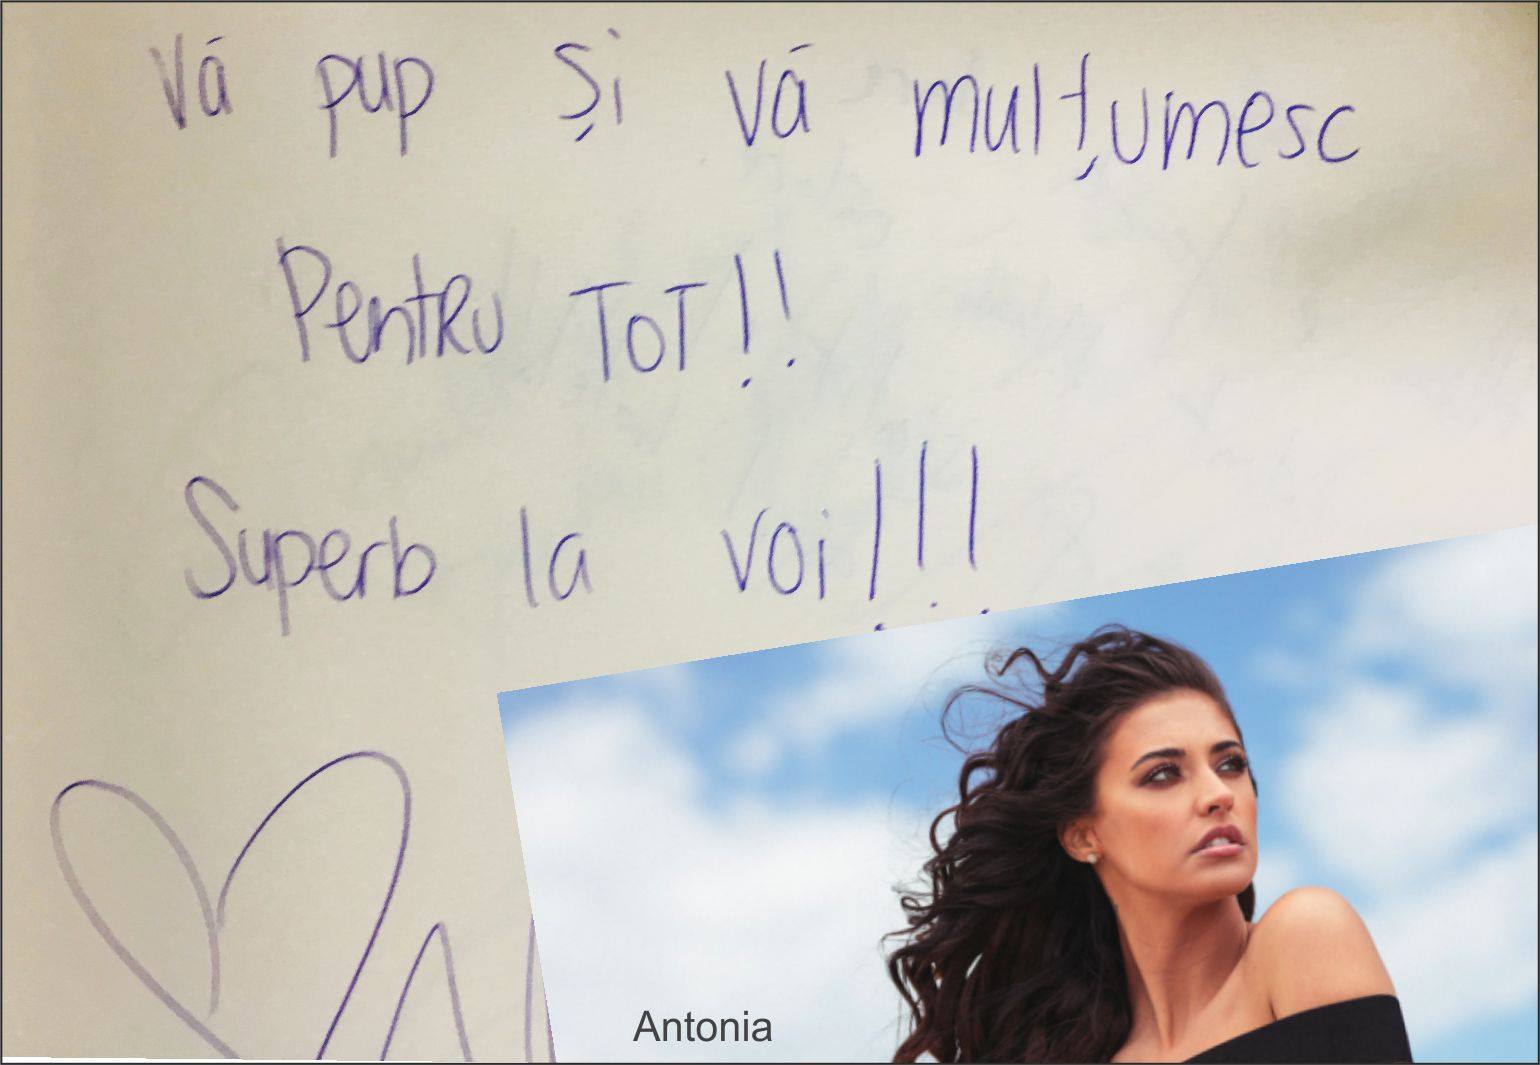 Vă pup și vă mulțumesc
Pentru TOT!!
Superb la voi!!!
Antonia